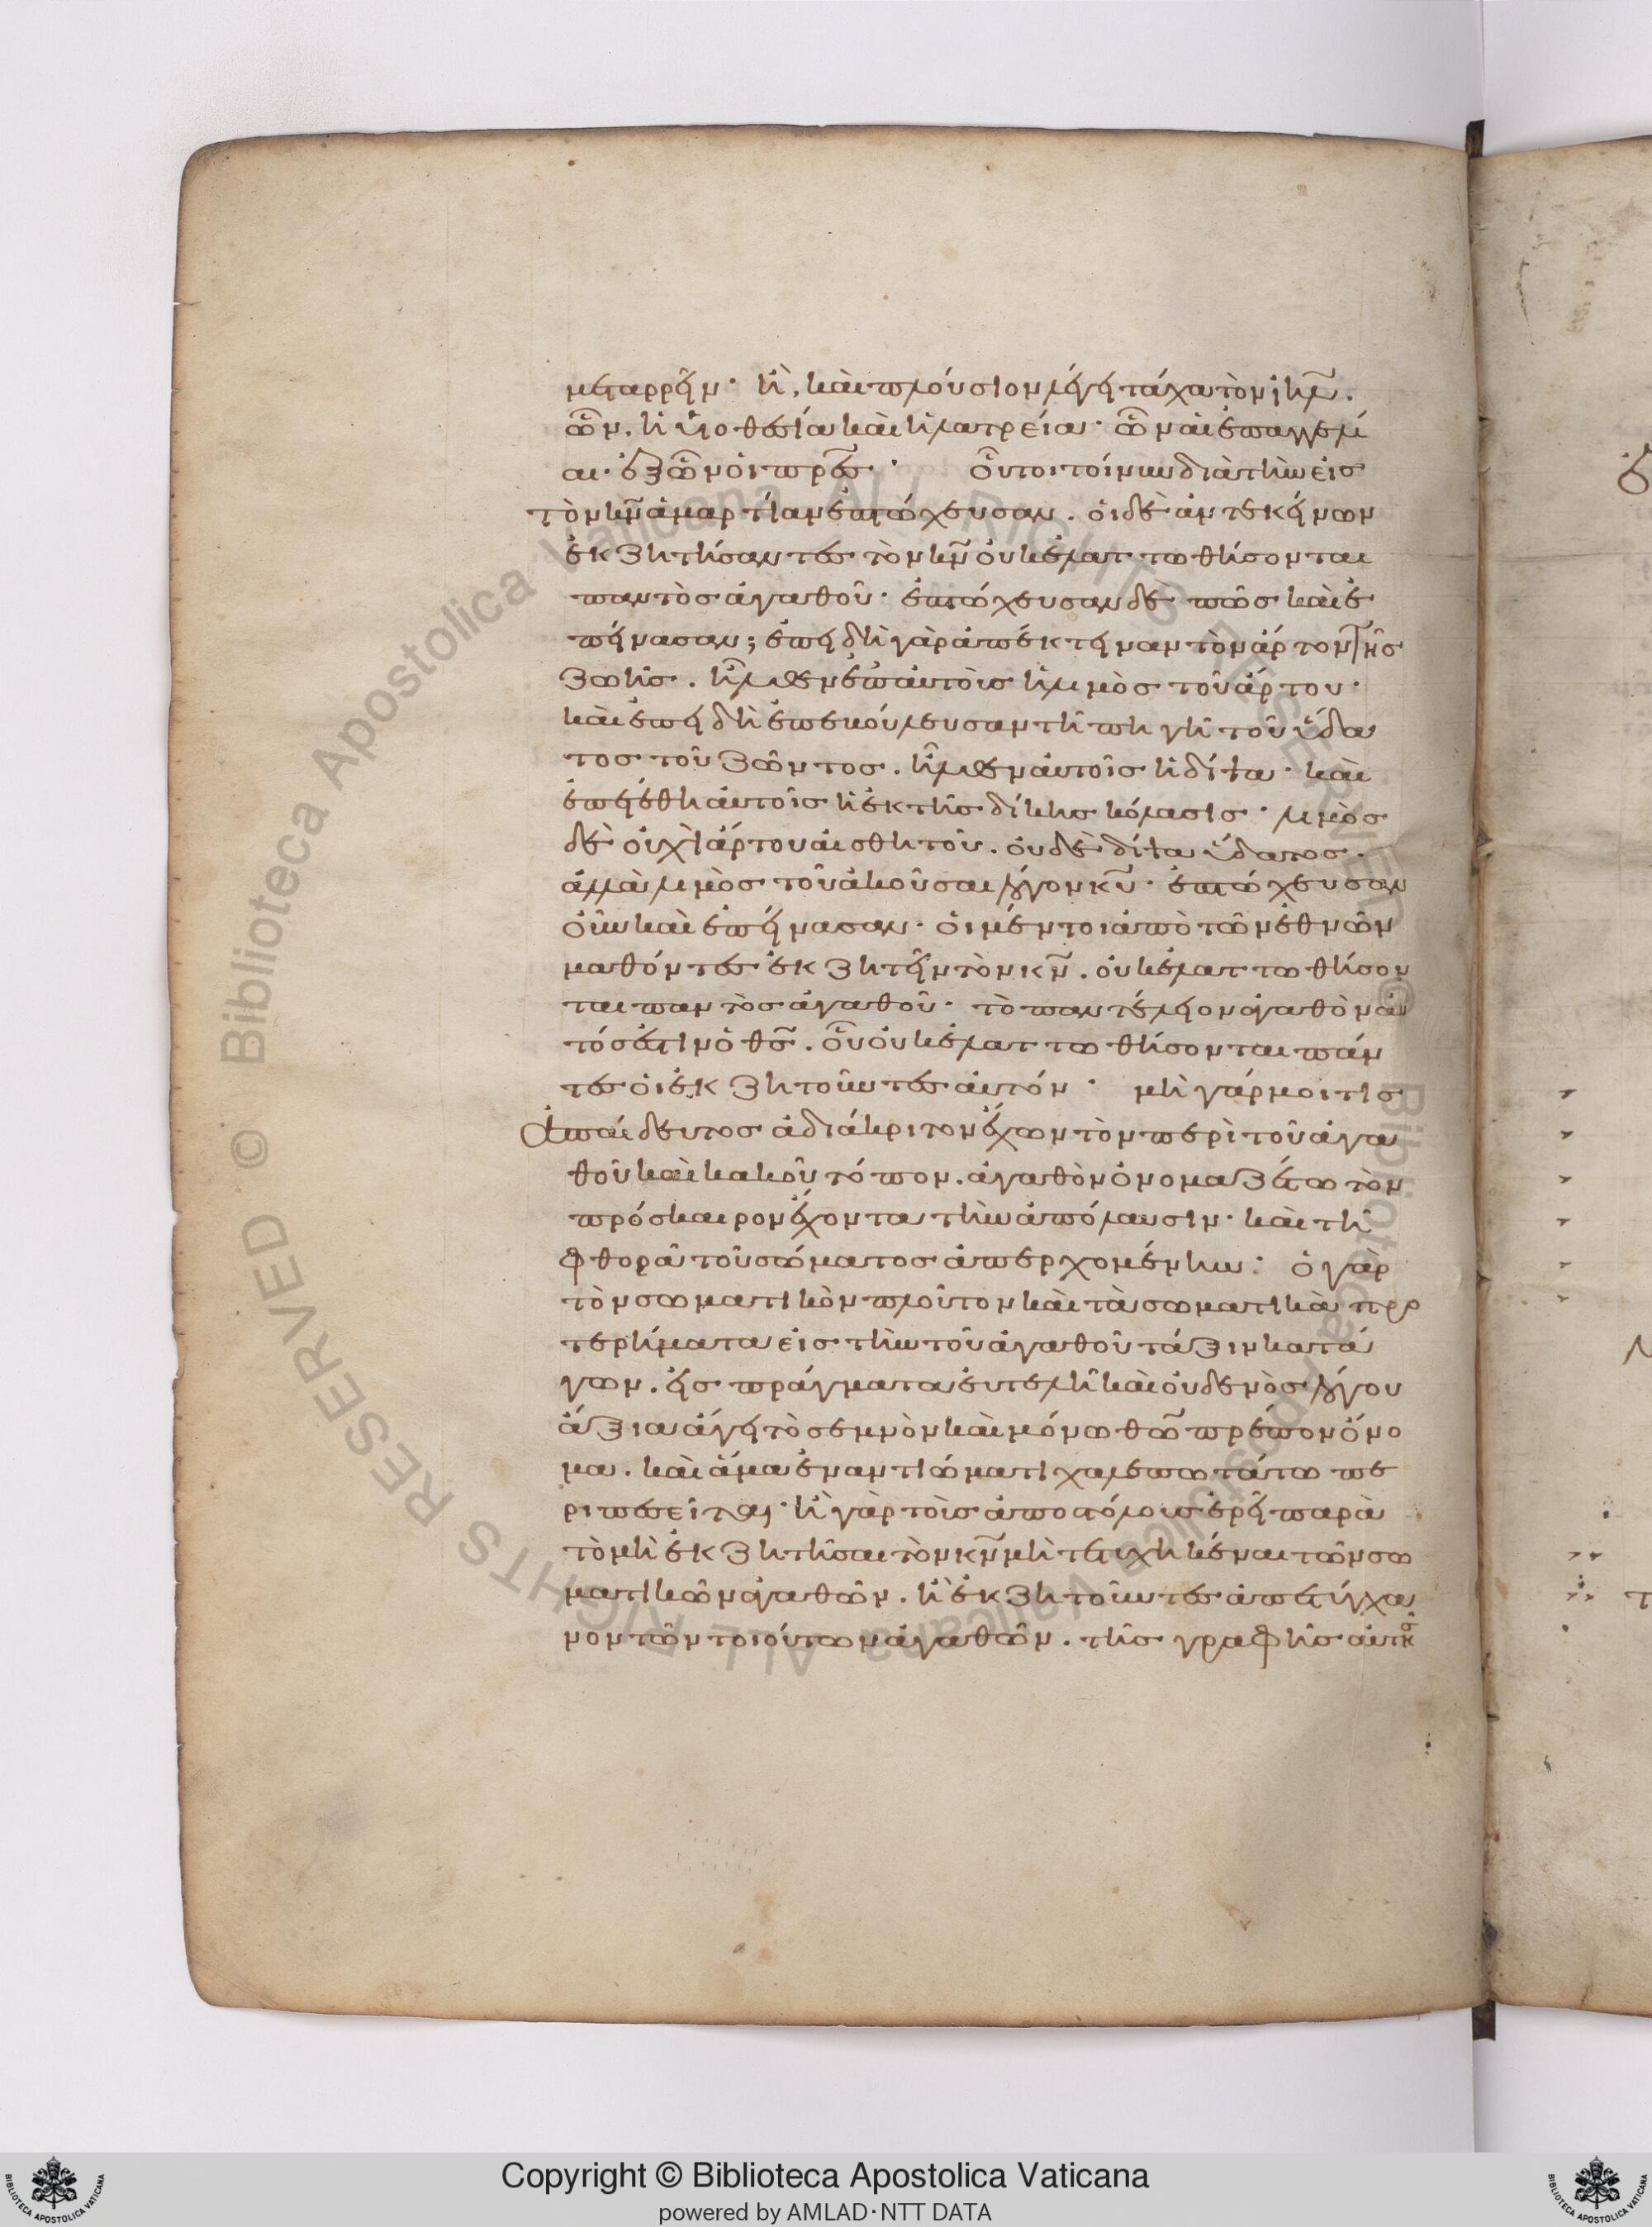 μεταρρεῖν· ἢ, καὶ πλούσιον λέγει τάχα τὸν ἰη̅λ.
ὧν. ἡ υἱοθεσία καὶ ἡ λατρεία· ὧν αἱ ἐπαγγελί
αι· ἐξ ὧν οἱ πρ̅ες· οὗτοι τοίνυν διὰ τὴν εἰς
τὸν κ̅ν ἁμαρτίαν ἐπτώχευσαν. οἱ δὲ ἀντ' ἐκείνων
ἐκζητήσαντες τὸν κ̅ν οὐκ ἐλαττωθήσονται
παντὸς ἀγαθοῦ· ἐπτώχευσαν δὲ πῶς καὶ ἐ
πείνασαν; ἐπειδὴ γὰρ ἀπέκτειναν τὸν ἄρτον τῆς
ζωῆς. ἦλθεν ἐπ' αὐτοῖς λιμὸς τοῦ ἄρτου·
καὶ ἐπειδὴ ἐπεβούλευσαν τῆ πηγῆ τοῦ ὕδα
τος τοῦ ζῶντος. ἦλθεν αὐτοῖς ἡ δίψα· καὶ
ἐπετέθη αὐτοῖς ἡ ἐκ τῆς δίψης κόλασις· λιμὸς
δὲ οὐχὶ ἄρτου αἰσθητοῦ. οὐδὲ δίψα ὕδατος.
ἀλλὰ λιμὸς τοῦ ἀκοῦσαι λόγον κ̅υ· ἐπτώχευσαν
οὖν καὶ ἐπείνασαν· οἱ μέντοι ἀπὸ τῶν ἐθνῶν
μαθόντες ἐκζητεῖν τὸν κ̅ν. οὐκ ἐλαττωθήσον
ται παντὸς ἀγαθοῦ· τὸ παντέλειον ἀγαθὸν αὐ
τός ἐστιν ὁ θ̅ς. οὗ οὐκ ἐλαττωθήσονται πάν
τες οἱ ἐκζητοῦντες αὐτόν· μὴ γάρ μοι τις
Ἀπαίδευτος ἀδιάκριτον ἔχων τὸν περὶ τοῦ ἀγα
θοῦ καὶ κακοῦ τόπον. ἀγαθὸν ὀνομαζέτω τὸν
πρόσκαιρον ἔχοντα τὴν ἀπόλαυσιν· καὶ τῆ
φθορᾶ τοῦ σώματος ἀπερχομένην· ὁ γὰρ
τὸν σωματικὸν πλοῦτον καὶ τὰ σωματικὰ προ
τερήματα εἰς τὴν τοῦ ἀγαθοῦ τάξιν κατά
γων. εἰς πράγματα εὐτελῆ καὶ οὐδενὸς λόγου
ἄξια ἄγει τὸ σεμνὸν καὶ μόνω θ̅ω πρέπον ὄνο
μα. καὶ ἅμα ἐναντιώματι χαλεπωτάτω πε
ριπεσεῖται· ἢ γὰρ τοῖς ἀποστόλους ἐρεῖ παρὰ
τὸ μὴ ἐκζητῆσαι τὸν κ̅ν μὴ τετυχηκέναι τῶν σω
ματικῶν ἀγαθῶν. ἢ ἐκζητοῦντες ἀπετύγχα
νον τῶν τοιούτων ἀγαθῶν. τῆς γραφῆς αὐτοῖς
Copyright © Biblioteca Apostolica Vaticana
powered by AMLAD·NTT DATA